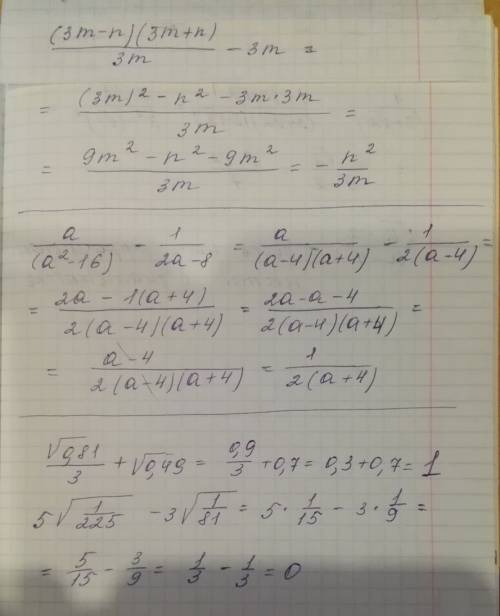 (3m-n)(3m+n)/3m - 3m =
= ((3m)² - n² - 3m·3m)/3m =
= (9m² - n² - 9m²)/3m = - n²/3m
a/(a²-16) - 1/(2a-8) = a/((a-4)(a+4)) - 1/(2(a-4)) =
= (2a - 1(a+4))/(2(a-4)(a+4)) = (2a-a-4)/(2(a-4)(a+4)) =
= (a-4)/(2(a-4)(a+4)) = 1/(2(a+4))
√0,81/3 + √0,49 = 0,9/3 + 0,7 = 0,3+0,7 = 1
5√(1/225) - 3√(1/81) = 5·1/15 - 3·1/9 =
= 5/15 - 3/9 = 1/3 - 1/3 = 0